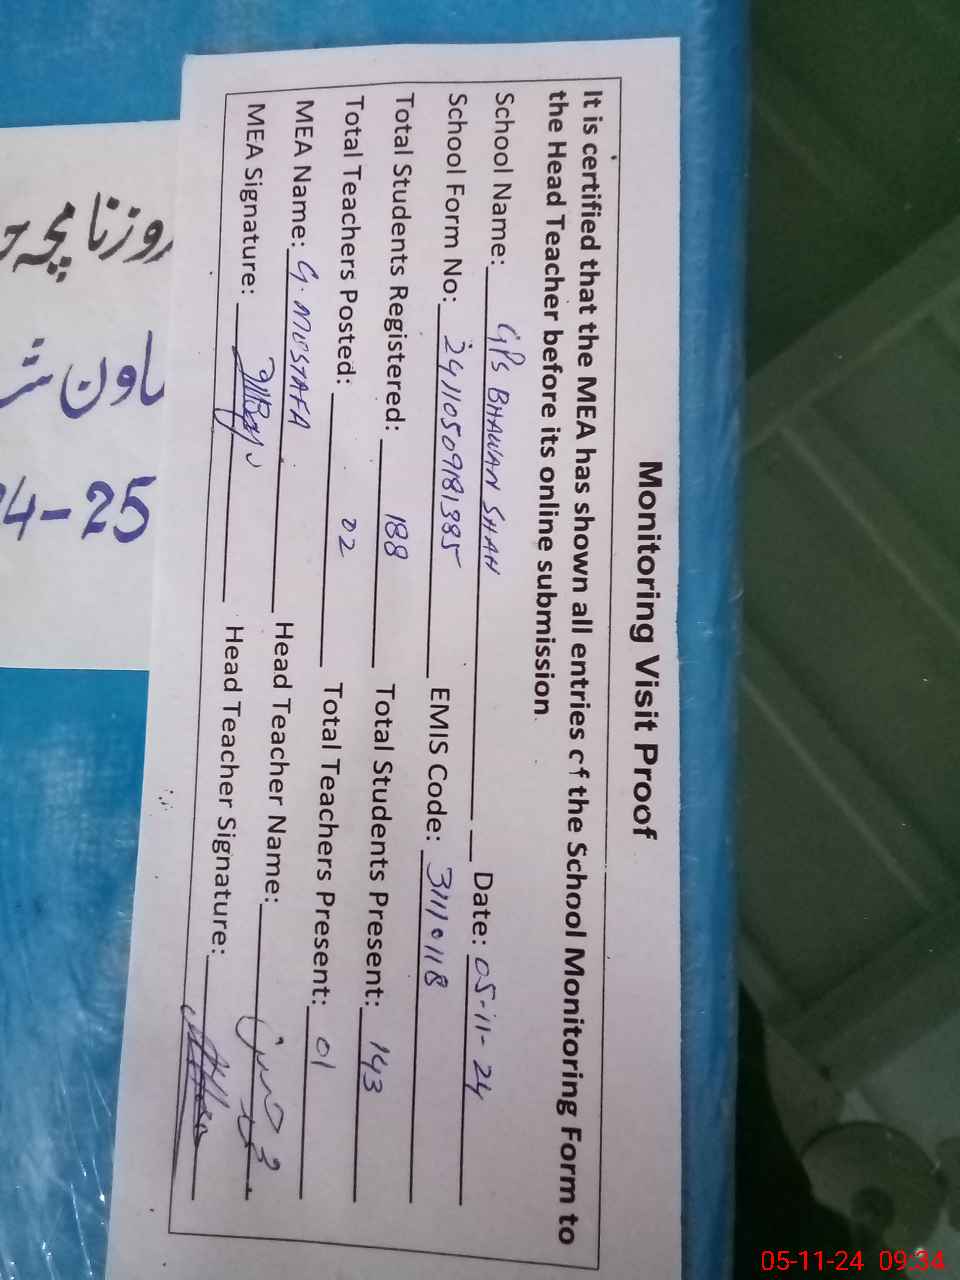 Monitoring Visit Proof
It is certified that the MEA has shown all entries of the School Monitoring Form to
the Head Teacher before its online submission.
School Name: GPS BHAWAN SHAH Date: 05-11-24
School Form No: 24110509181385 EMIS Code: 31110118
Total Students Registered: 188 Total Students Present: 143
Total Teachers Posted: 02 Total Teachers Present: 01
MEA Name: G. MUSTAFA Head Teacher Name:
MEA Signature: Head Teacher Signature:
روزنامچہ
4-25
05-11-24 09:34